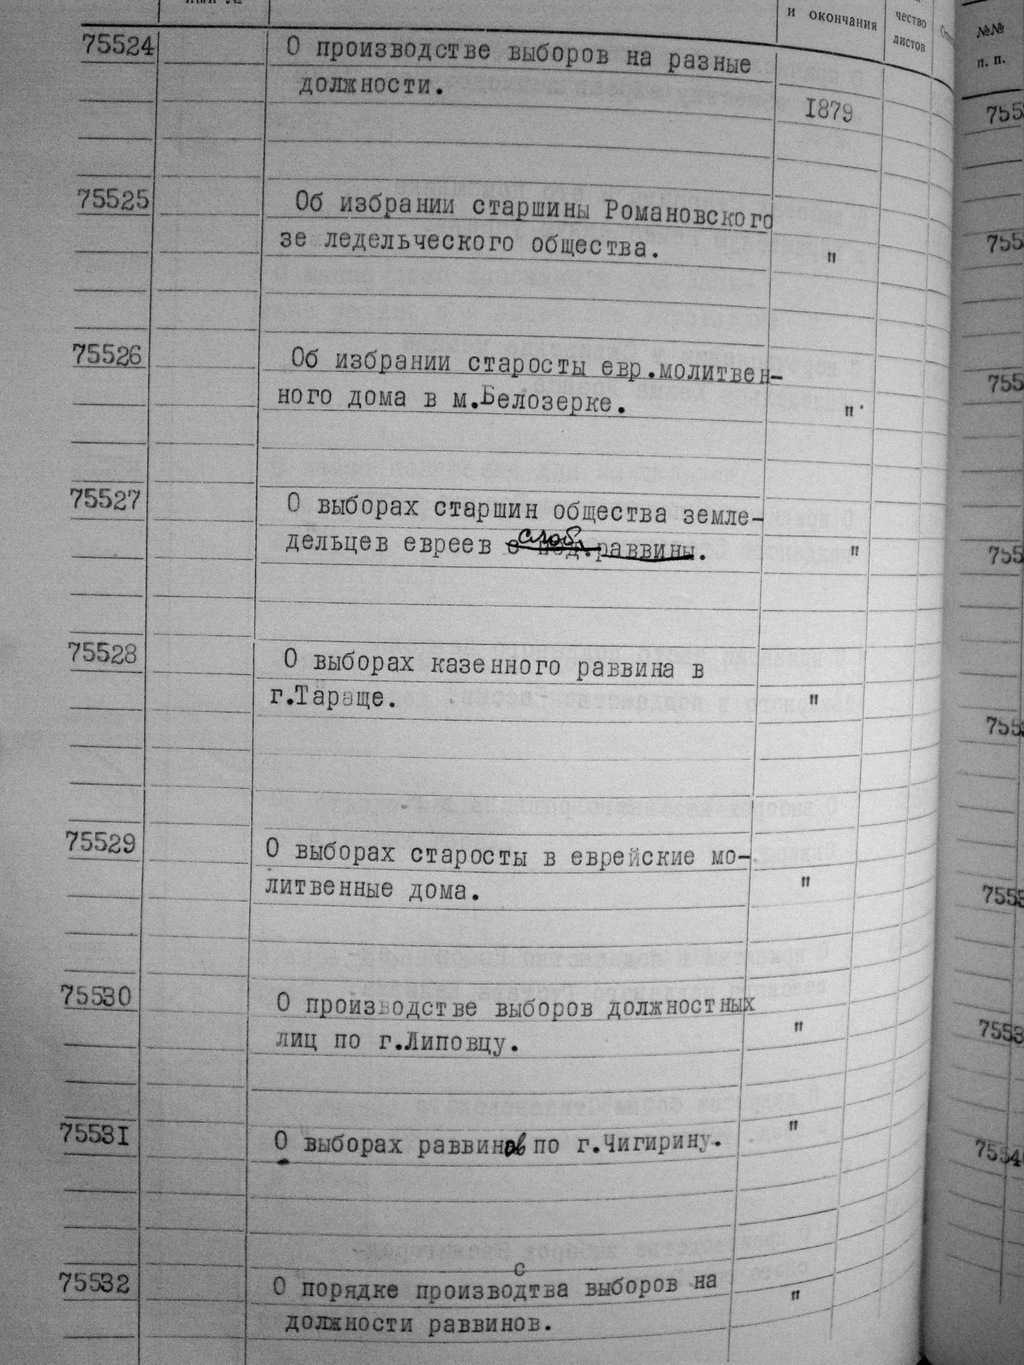 и окончания
чество
листов
№№
п. п.
75524
О производстве выборов на разные
должности.
1879
75525
Об избрании старшины Романовского
зе ледельческого общества.
"
75526
Об избрании старосты евр.молитвен-
ного дома в м.Белозерке.
"
75527
О выборах старшин общества земле-
слоб.
дельцев евреев с под.раввины.
"
75528
О выборах казенного раввина в
г.Тараще.
"
75529
О выборах старосты в еврейские мо-
литвенные дома.
"
75530
О производстве выборов должностных
лиц по г.Липовцу.
"
75531
О выборах раввинов по г.Чигирину.
"
75532
с
О порядке производтва выборов на
должности раввинов.
"